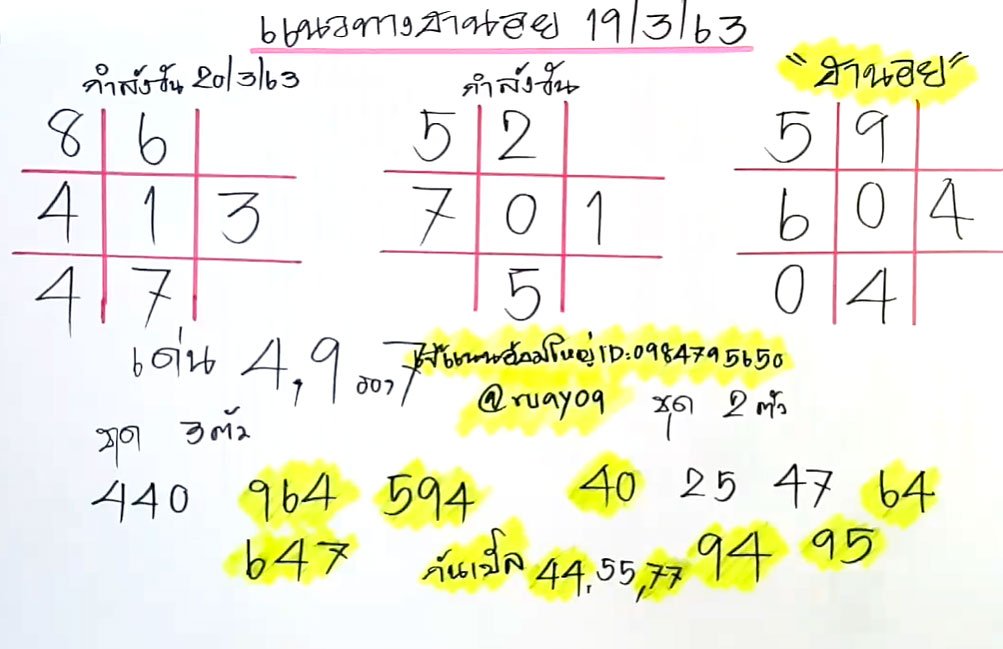 แนวทางฮานอย 19/3/63
กำลังวัน 20/3/63
8 6
4 1 3
4 7
กำลังวัน
5 2
7 0 1
5
"ฮานอย"
5 9
6 0 4
0 4
เด่น 4,9 รอง 7
ID:0984795650
@ruay09
ชุด 3ตัว
440 964 594
647
ชุด 2 ตัว
40 25 47 64
94 95
กันเบิ้ล 44,55,77